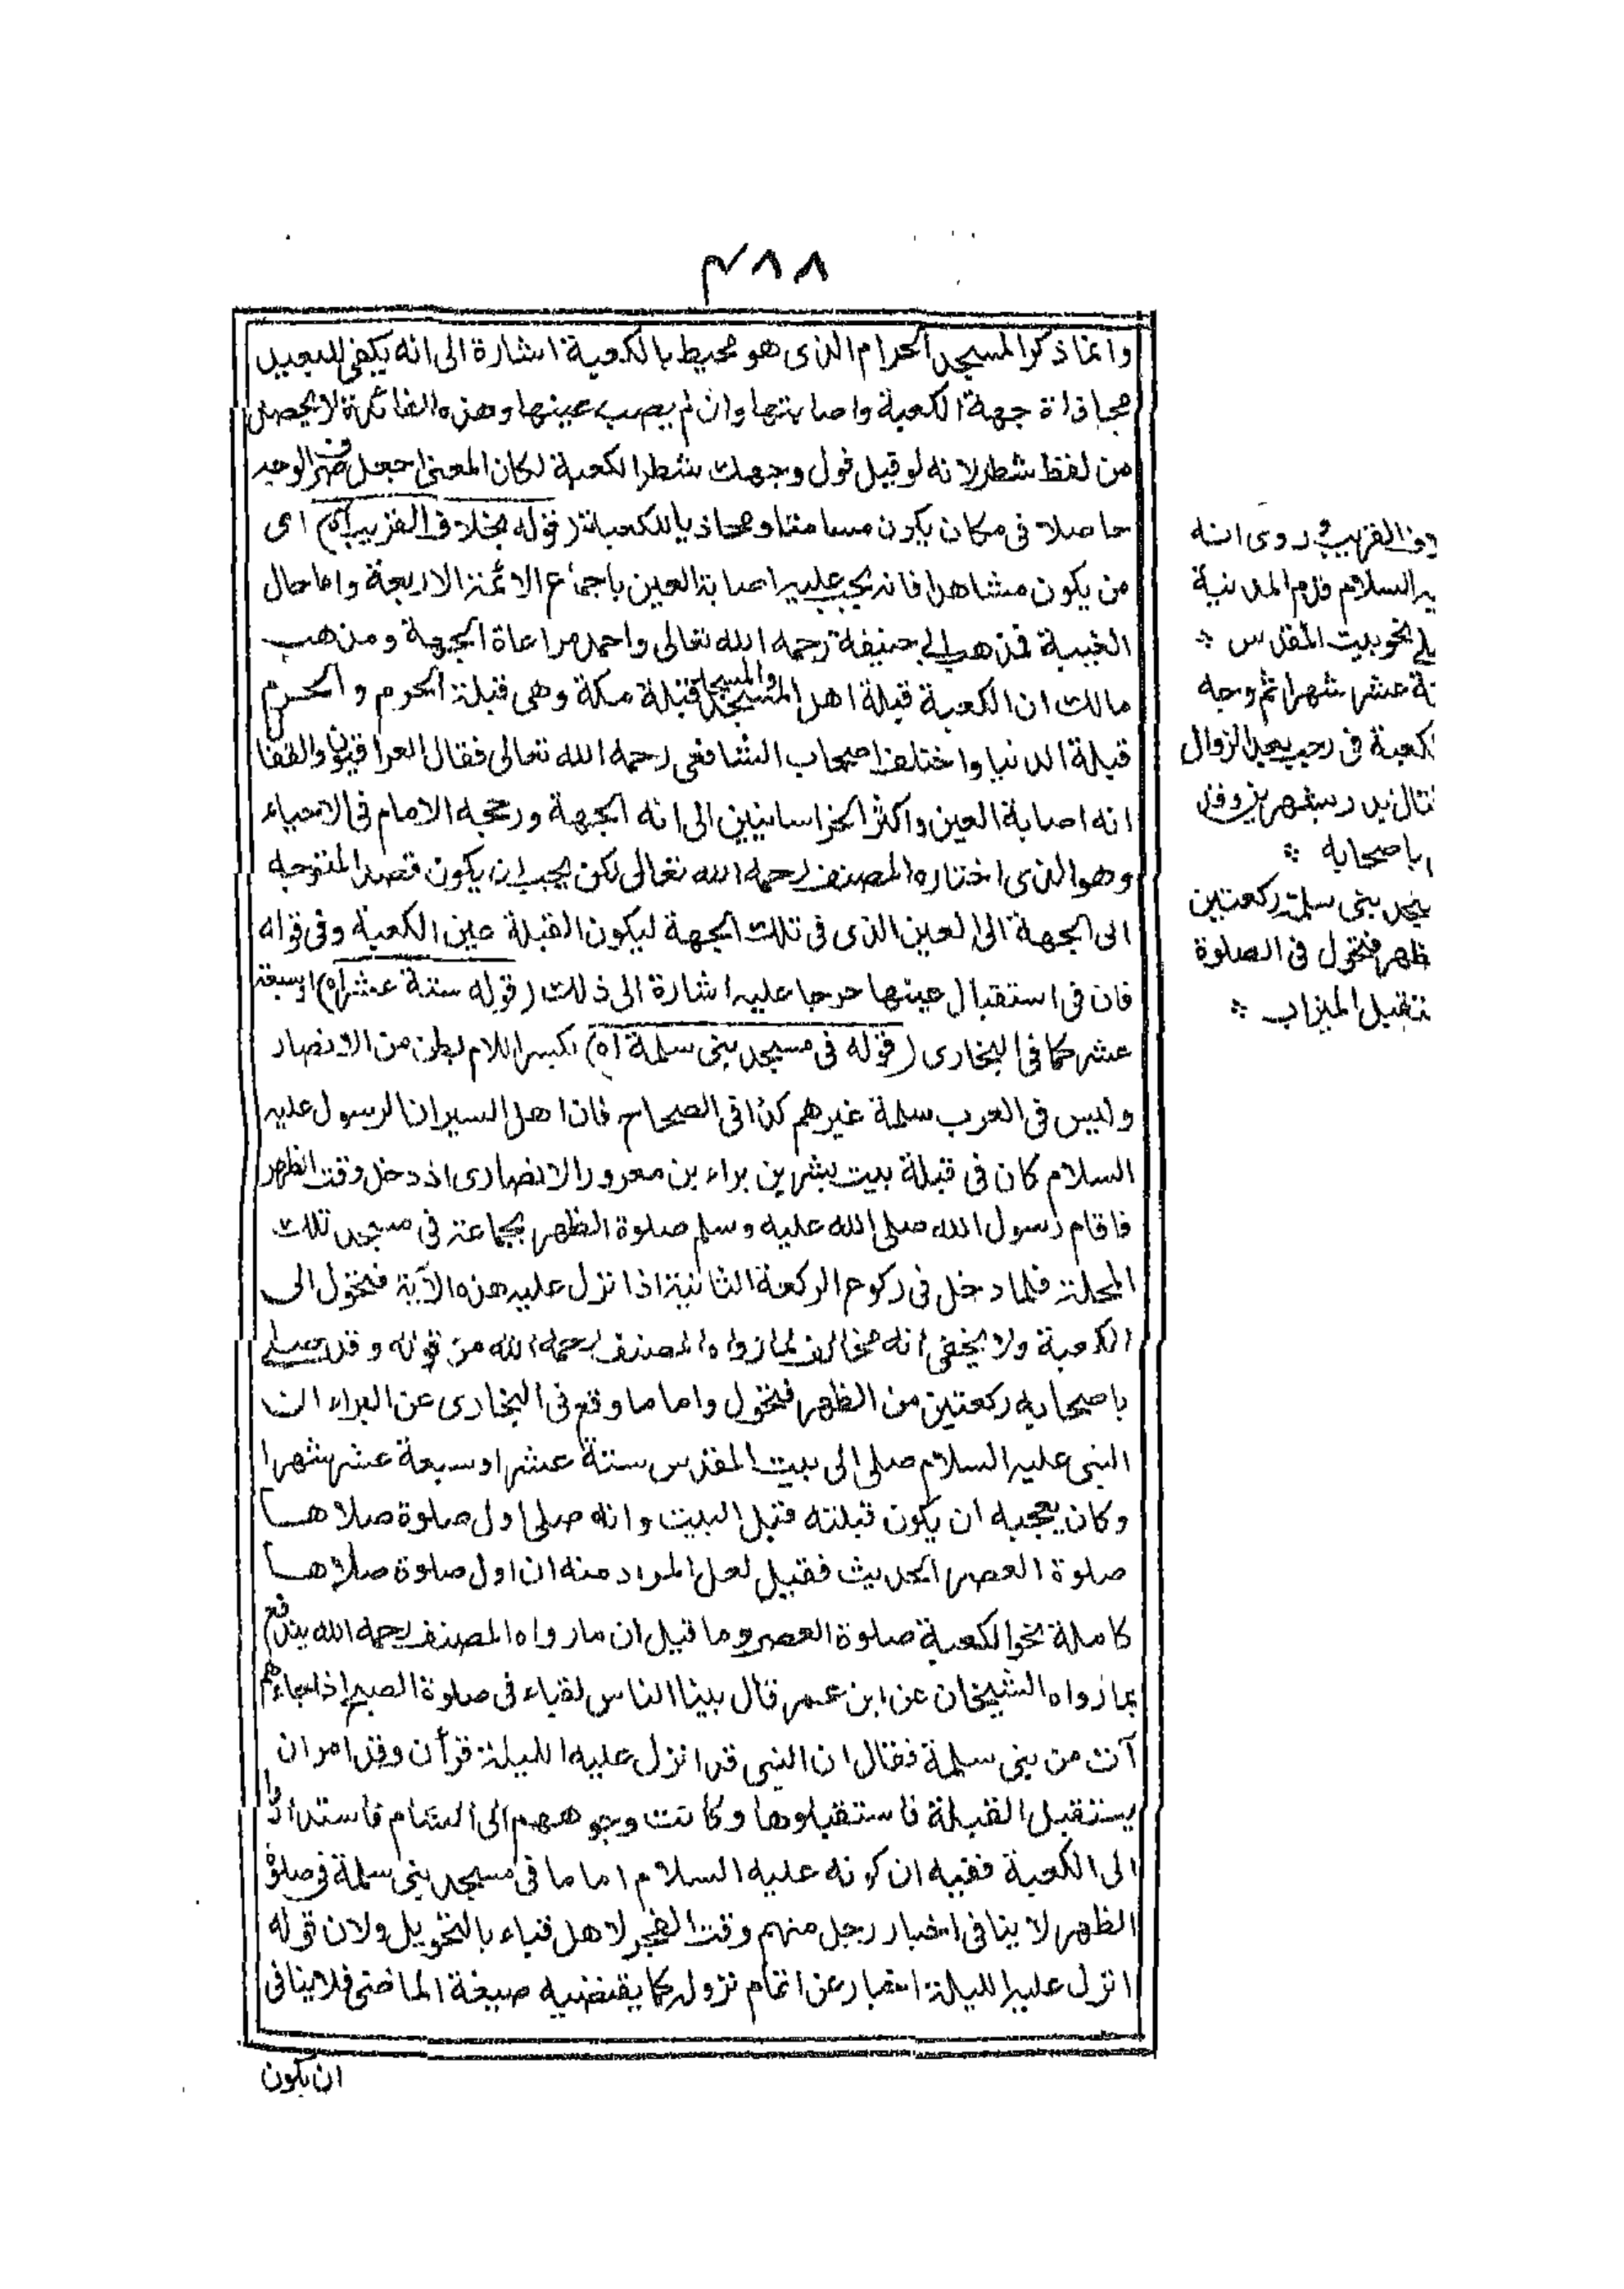 ٣٨٨
وانما ذكر المسجد الحرام الذى هو محيط بالكعبة اشارة الى انه يكفى للبعيد
محاذاة جهة الكعبة واصابتها وان لم يصب عينها وهذه الفائدة لا يحصل
من لفظ شطر لانه لو قيل فول وجهك شطر الكعبة لكان المعنى اجعل صرف الوجه
حاصلا فى مكان يكون مسامتا ومحاذيا للكعبة (قوله بخلاف القريب اه) اى
من يكون مشاهدا فانه يجب عليه اصابة العين باجماع الائمة الاربعة واما حال
الغيبة فذهب ابى حنيفة رحمه الله تعالى واحمد مراعاة الجهة ومذهب
مالك ان الكعبة قبلة اهل المسجد والمسجد قبلة مكة وهى قبلة الحرم والحرم
قبلة الدنيا واختلف اصحاب الشافعى رحمه الله تعالى فقال العراقيون والقفا
انه اصابة العين واكثر الخراسانيين الى انه الجهة ورجحه الامام فى الاحياء
وهو الذى اختاره المصنف رحمه الله تعالى لكن يجب ان يكون قصد المتوجه
الى الجهة الى العين الذى فى تلك الجهة ليكون القبلة عين الكعبة وفى قوله
فان فى استقبال عينها حرجا عليه اشارة الى ذلك (قوله ستة عشر اه) او سبعة
عشر كما فى البخارى (قوله فى مسجد بنى سلمة اه) بكسر اللام بطن من الانصار
وليس فى العرب سلمة غيرهم كذا فى الصحاح فان اهل السير ان الرسول عليه
السلام كان فى قبلة بيت بشر بن براء بن معرور الانصارى اذ دخل وقت الظهر
فاقام رسول الله صلى الله عليه وسلم صلوة الظهر بجماعة فى مسجد تلك
المحلة فلما دخل فى ركوع الركعة الثانية اذا نزل عليه هذه الآية فتحول الى
الكعبة ولا يخفى انه مخالف لما رواه المصنف رحمه الله من قوله وقد صلى
باصحابه ركعتين من الظهر فتحول واما ما وقع فى البخارى عن البراء ان
النبى عليه السلام صلى الى بيت المقدس ستة عشر او سبعة عشر شهرا
وكان يعجبه ان يكون قبلته قبل البيت وانه صلى اول صلوة صلاها
صلوة العصر الحديث فقيل لعل المراد منه ان اول صلوة صلاها
كاملة نحو الكعبة صلوة العصر وما قيل ان ما رواه المصنف رحمه الله يندفع
بما رواه الشيخان عن ابن عمر قال بينا الناس لقباء فى صلوة الصبح اذا جاءهم
آت من بنى سلمة فقال ان النبى قد انزل عليه الليلة قرآن وقد امر ان
يستقبل القبلة فاستقبلوها وكانت وجوههم الى الشام فاستداروا
الى الكعبة ففيه ان كونه عليه السلام اماما فى مسجد بنى سلمة فى صلوة
الظهر لا ينافى اخبار رجل منهم وقت الفجر لاهل قباء بالتحويل ولان قوله
انزل عليه الليلة اخبار عن اتمام نزوله كما يقتضيه صيغة الماضى فلا ينافى
ان يكون
القريب روى انه
يه السلام قدم المدينة
نحو بيت المقدس
ة عشر شهرا ثم وجه
كعبة فى رجب بعد الزوال
قتال بدر بشهرين وقد
باصحابه
جد بنى سلمة ركعتين
ظهر فتحول فى الصلوة
ستقبل الميزاب